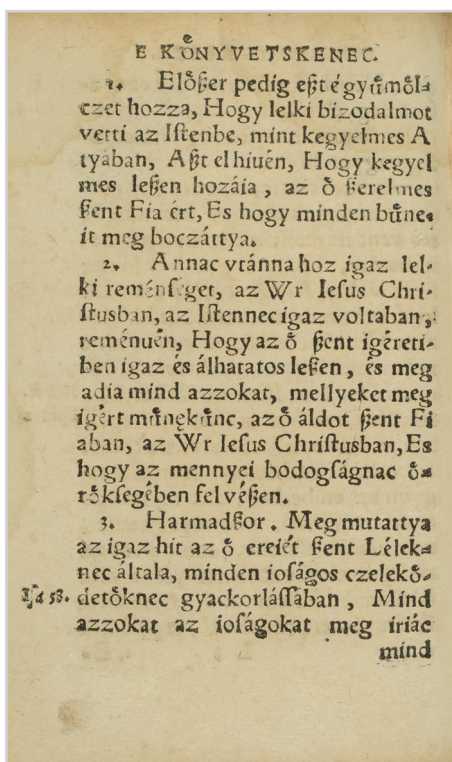 E KOͤNYVETSKENEC.
1. Eloͤßer pedíg eßt é gyuͤmoͤl⸗
czet hozza, Hogy lelki bizodalmot
verti az Iſtenbe, mint kegyelmes A
tyában, Aßt el hiuén, Hogy kegyel
mes leßen hozáia, az oͤ ßerelmes
ßent Fia ért, Es hogy minden buͤne⸗
it meg boczáttya.
2. Annac vtánna hoz igaz lel⸗
ki reménſeget, az Wr Ieſus Chri⸗
ſtusban, az Iſtennec igaz voltaban,
reménuén, Hogy az oͤ ßent igéreti⸗
ben igaz és álhatatos leßen, és meg
adia mind azzokat, mellyeket meg
igért muͤnekuͤnc, az oͤ áldot ßent Fi
aban, az Wr Ieſus Chriſtusban, Es
hogy az mennyei bodogſágnac oͤ⸗
roͤkſegében fel véßen.
3. Harmadßor. Meg mutattya
az igaz hit az oͤ ereiét ßent Lélek⸗
nec általa, minden ioſágos czelekoͤ⸗
Iſa 58. detoͤknec gyackorláſſában, Mind
azzokat az ioſágokat meg iriác
mind